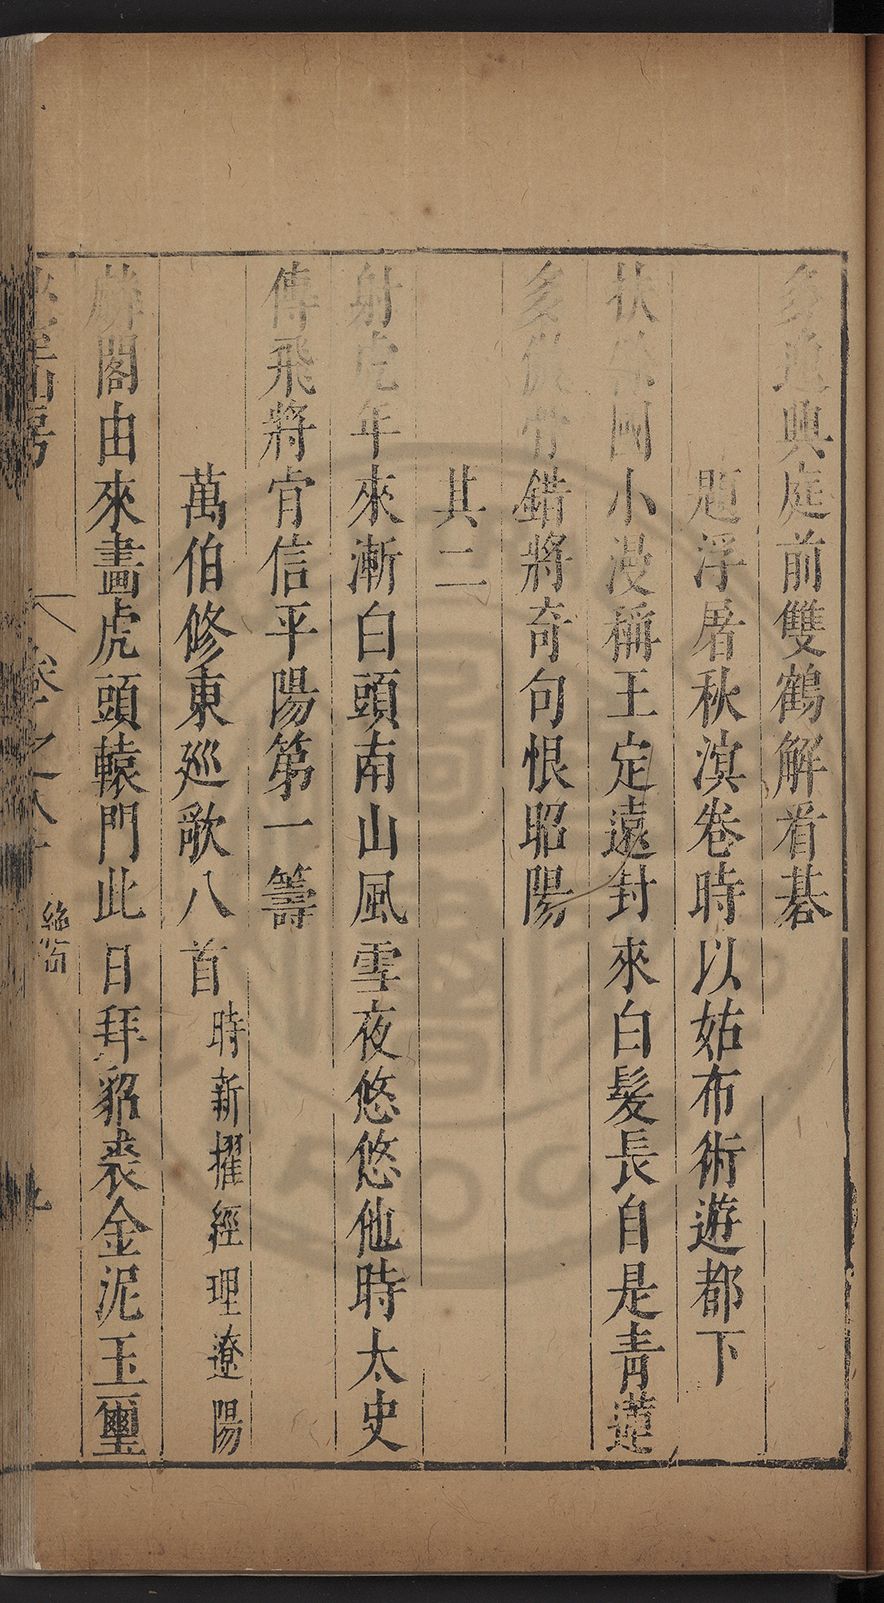 多逸典庭前雙鶴解看碁
題浮屠秋濵卷時以姑布術遊都下
扶餘國小漫稱王定遠封來白髮長自是青蓮
多俠骨錯將奇句恨昭陽
其二
射虎年來漸白頭南山風雪夜悠悠他時太史
傳飛將肯信平陽第一籌
萬伯修東廵歌八首時新擢經理遼陽
麟閣由來畵虎頭轅門此日拜貂裘金泥玉璽
山房 卷之八十 絶句 九